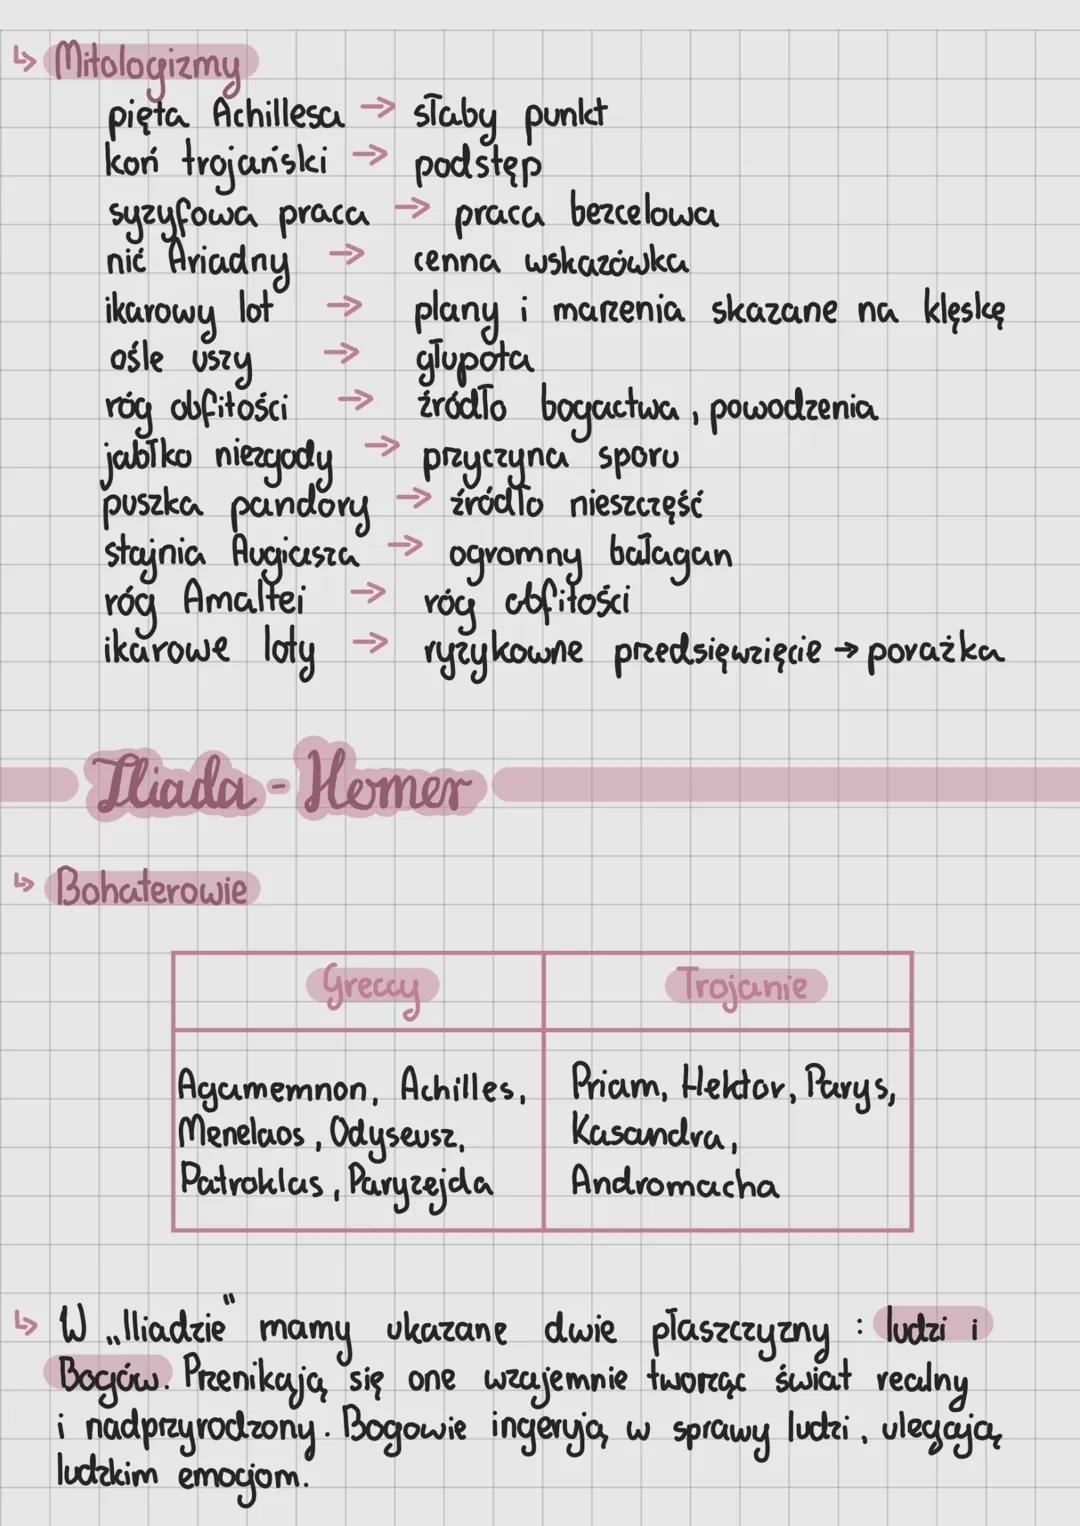 ↳ Mitologizmy
pięta Achillesa → słaby punkt
koń trojański → podstęp
syzyfowa praca → praca bezcelowa
nić Ariadny → cenna wskazówka
ikarowy lot → plany i marzenia skazane na klęskę
ośle uszy → głupota
róg obfitości → źródło bogactwa, powodzenia
jabłko niezgody → przyczyna sporu
puszka pandory → źródło nieszczęść
stajnia Augiasza → ogromny bałagan
róg Amaltei → róg obfitości
ikarowe loty → ryzykowne przedsięwzięcie → porażka
Iliada - Homer
↳ Bohaterowie
Greccy
Agamemnon, Achilles,
Menelaos, Odyseusz,
Patroklas, Paryzejda
Trojanie
Priam, Hektor, Parys,
Kasandra,
Andromacha
↳ W „Iliadzie" mamy ukazane dwie płaszczyzny: ludzi i
Bogów. Przenikają się one wzajemnie tworząc świat realny
i nadprzyrodzony. Bogowie ingerują w sprawy ludzi, ulegają
ludzkim emocjom.